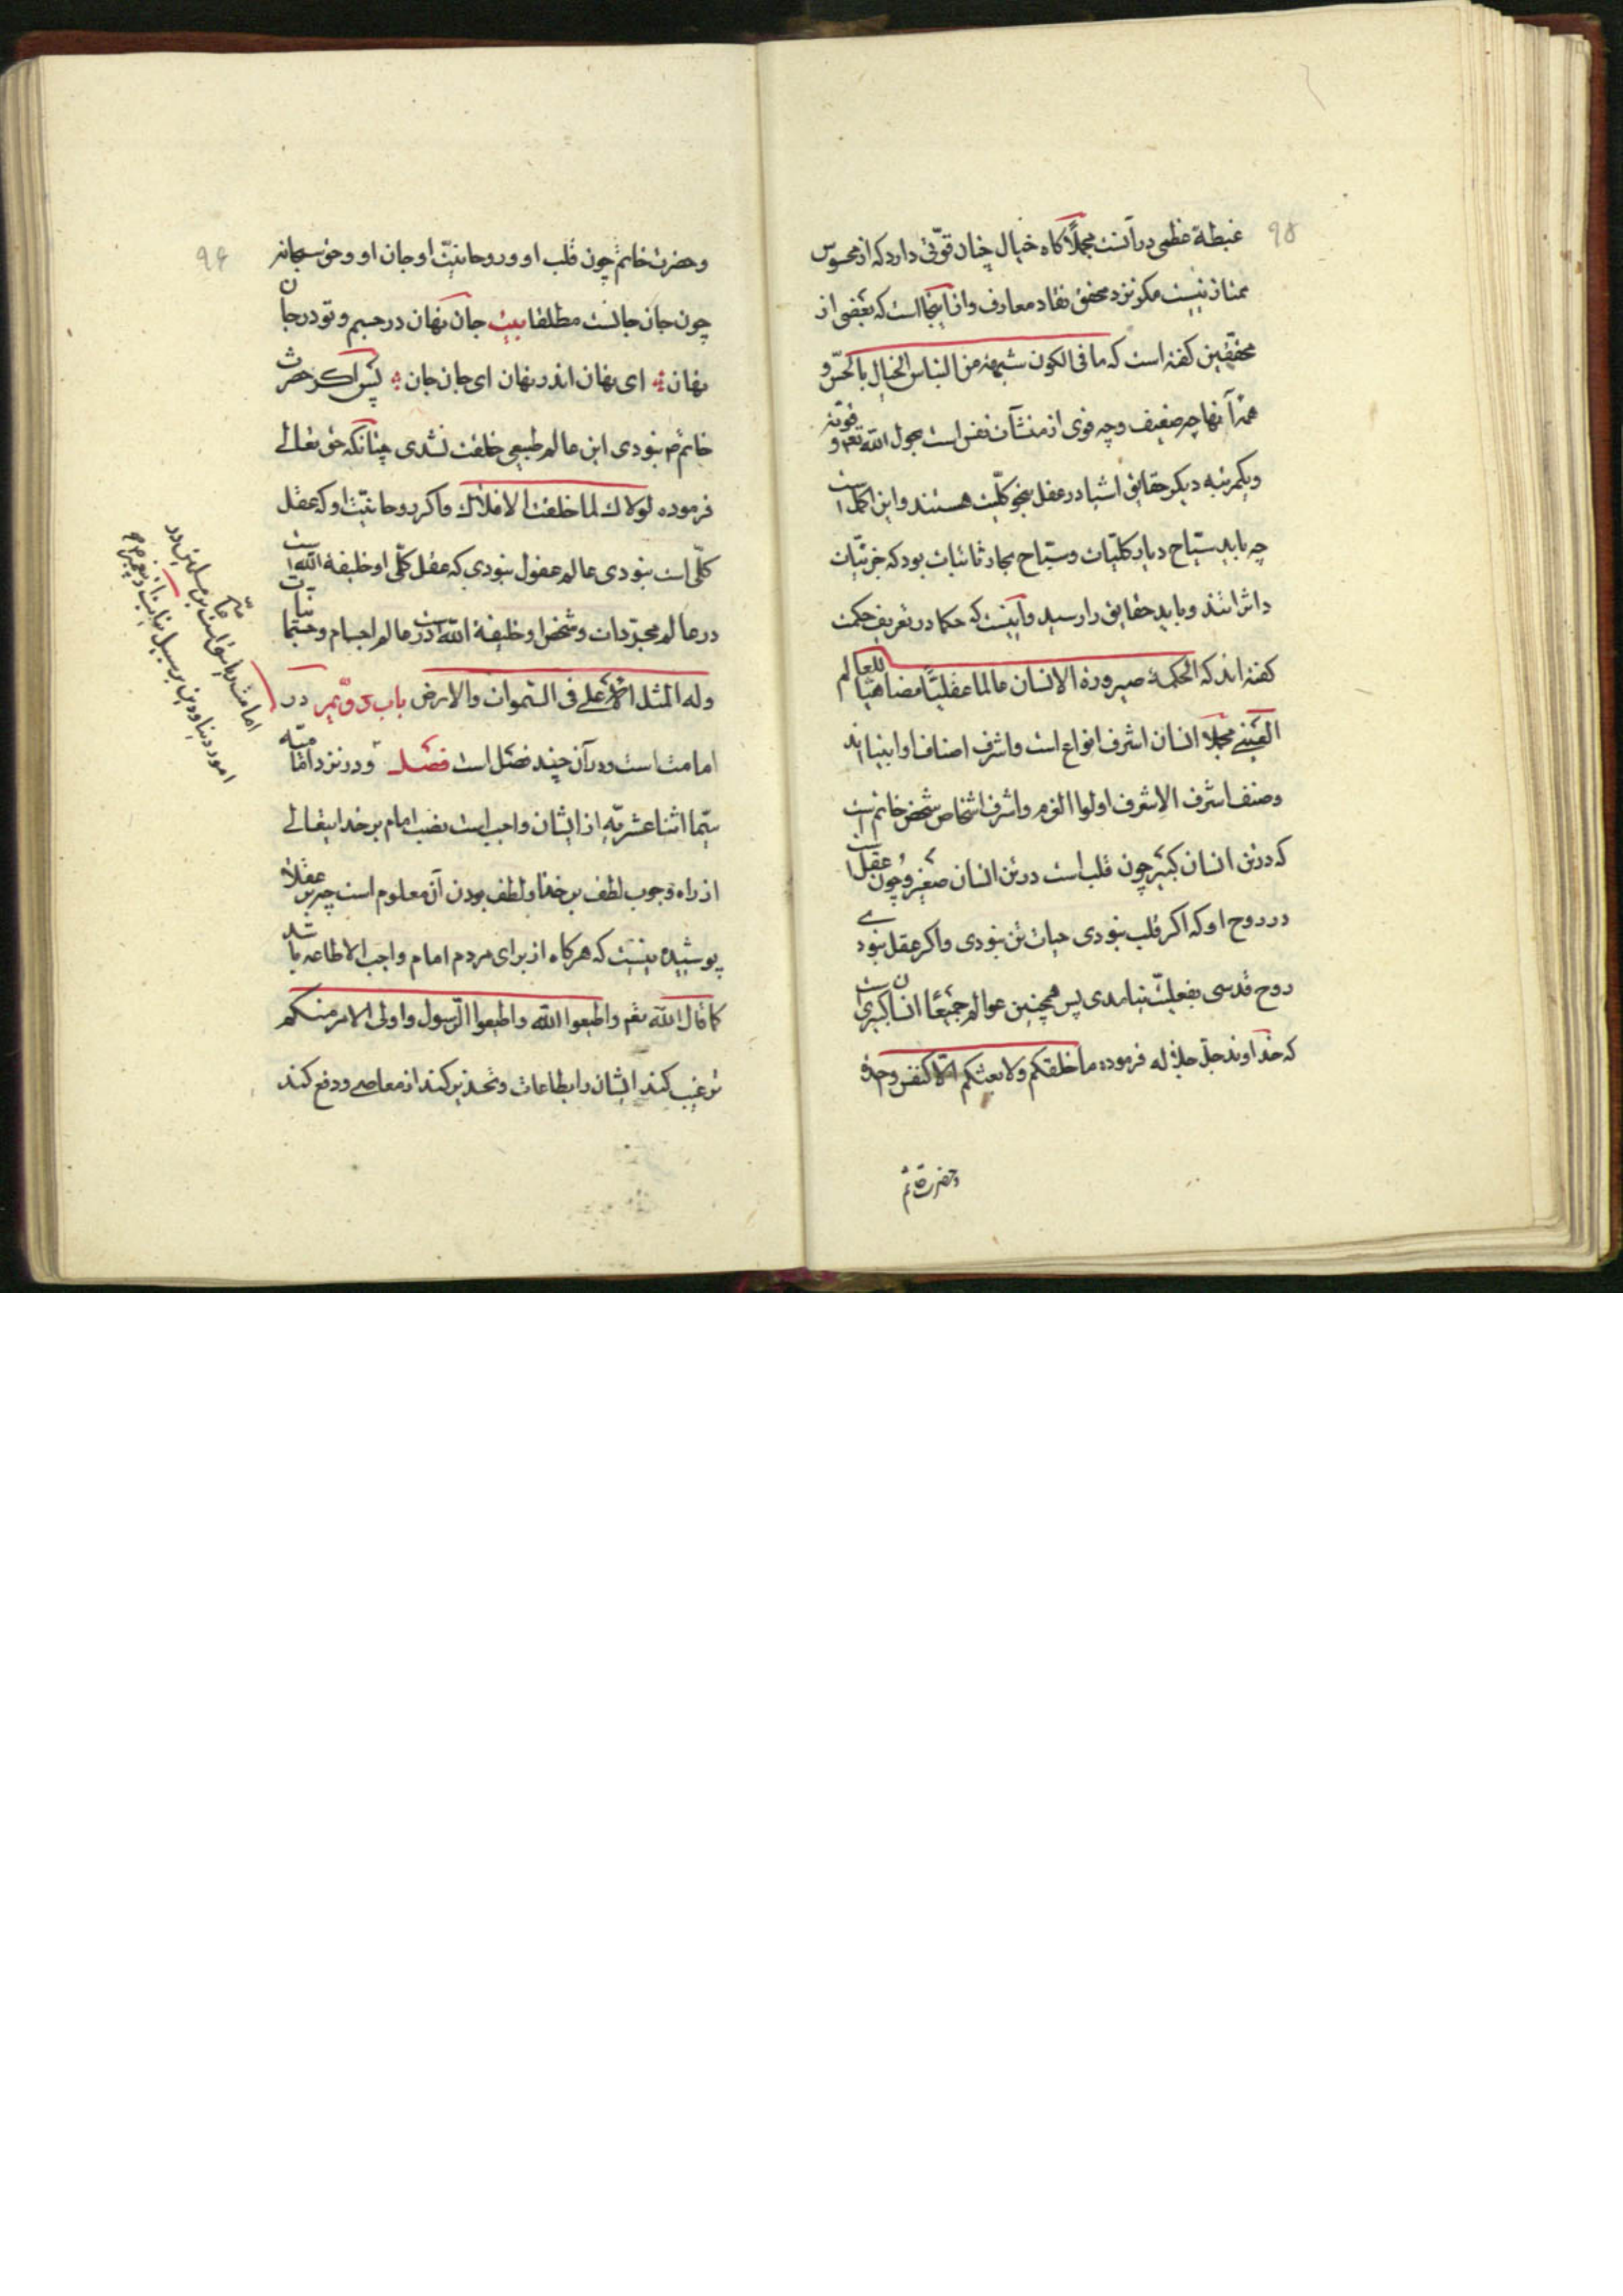 ۹۵
غبطهٔ عظمی در آنست مجملاً کاه خیال چنان قوّتی دارد که از محسوس
ممتاز نیست مکر نزد محقق نقاد معارف و از اینجا است که بعضی از
محققین کفته است که ما فی الکون شبهة من التباس الخیال بالحسّ و
همهٔ آنها چه ضعیف و چه قوی از منشآت نفس است بحول الله تعم و قوته
و یکمرتبه دیکر حقایق اشیا در عقل بنحو کلیّت هستند و این اکمل است
چه باید سیّاح دیار کلیّات و سبّاح بحار ثابتات بود که جزئیّات
داثراتند و باید حقایق را رسید و اینست که حکما در تعریف حکمت
کفته‌اند که الحکمة صیرورة الانسان عالما عقلیّاً مضاهیاً للعالم
العینی مجملاً انسان اشرف انواع است و اشرف اصناف او انبیا اند
و صنف اشرف الاشرف اولوا العزم و اشرف اشخاص شخص خاتم است
که در تن انسان کبیر چون قلب است در تن انسان صغیر و چون عقل است
در روح او که اکر قلب نبودی حیات تن نبودی و اکر عقل نبودی
روح قدسی بفعلیّت نیامدی پس همچنین عوالم جمیعاً انسان کبیری است
که خداوند جلّ جلاله فرموده ما خلقکم ولا بعثکم الّا کنفس واحدة
وحضرت خاتم
۹۶
و حضرت خاتم چون قلب او و روحانیّت او جان او و حق سبحانه
چون جان جانست مطلقا بیت جان نهان در جسم و تو در جان
نهان ؞ ای نهان اندر نهان ای جان جان ؞ پس اکر حضرت
خاتم ص نبودی این عالم طبیعی خلقت نشدی چنانکه حق تعالی
فرموده لولاک لما خلقت الافلاک و اکر روحانیّت او که عقل
کلّی است نبودی عالم عقول نبودی که عقل کلّی او خلیفة الله است
در عالم مجرّدات و شخص او خلیفة الله است در عالم اجسام و جسمانیات
وله المثل الاعلی فی السّموات والارض باب دوّیم در
امامت است و در آن چند فصل است فصل و در نزد امامیّه
سیّما اثنا عشریّه از ایشان واجب است نصب امام بر خدایتعالی
از راه وجوب لطف بر خدا و لطف بودن آن معلوم است چه بر عقلا
پوشیده نیست که هرکاه از برای مردم امام واجب الاطاعه باشد
کما قال الله تعم واطیعوا الله واطیعوا الرّسول واولی الامر منکم
ترغیب کند ایشان را بطاعات و تحذیر کند از معاصی و دفع کند
امامت ریاستی است بر مسلمین در
امور دنیا و دین بر سبیل نیابت از پیغمبر ص